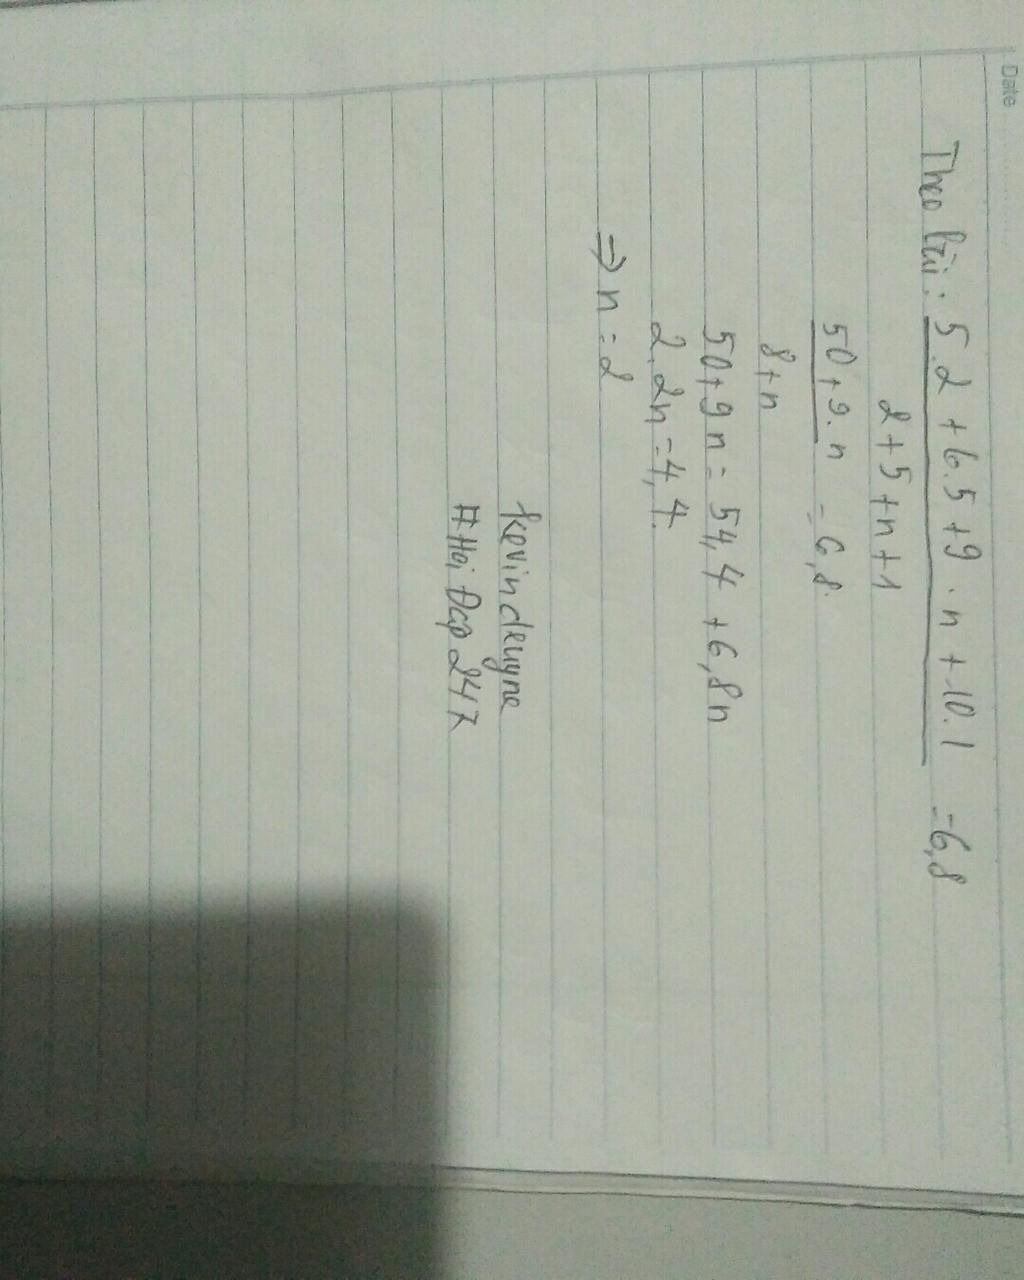 Date
Theo bài: 5.2 + 6.5 + 9.n + 10.1 = 6,8
2 + 5 + n + 1
50 + 9.n = 6,8.
8 + n
50 + 9n = 54,4 + 6,8n
2,2n = 4,4.
⇒ n = 2
kevindeuyne
#Hoi Đap 247